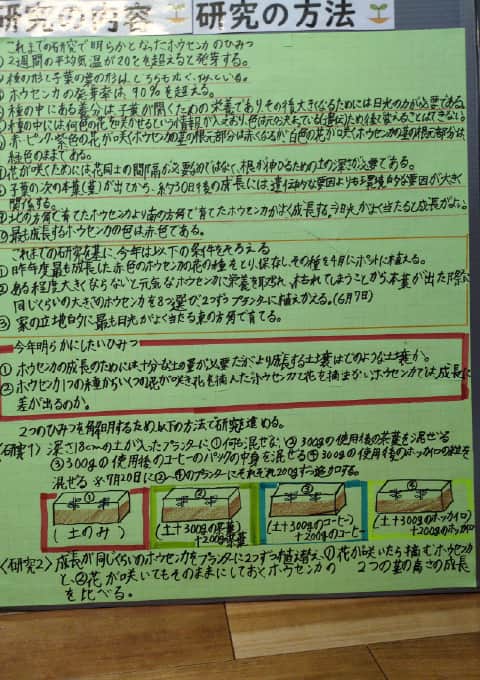 研究の内容 研究の方法
これまでの研究で明らかとなったホウセンカのひみつ
2週間の平均気温が20℃を超えると発芽する。
種の形と子葉の葉の形は、どちらも丸く、似ている。
ホウセンカの発芽率は90%を超える。
種の中にある養分は子葉が開くための栄養であり、その後大きくなるためには日光の力が必要である。
種の中には何色の花を咲かせるという情報が入っており、色は元々決まっている(遺伝)ため後で変えることはできない。
赤・ピンク・紫色の花が咲くホウセンカの茎の根元部分は赤くなるが、白色の花が咲くホウセンカの茎の根元部分は
緑色のままである。
花が咲くためには花同士の間隔が必要なのではなく、根が伸びるための土の深さが必要である。
子葉の次の本葉(葉)が出てから、約30日後の成長には遺伝的な要因よりも環境的な要因が大きく
関係する。
北の方角で育てたホウセンカより南の方角で育てたホウセンカがよく成長する。→日光がよく当たると成長がよい。
最も成長するホウセンカの色は赤色である。
これまでの研究を基に、今年は以下の条件をそろえる
① 昨年度最も成長した赤色のホウセンカの花の種をとり、保存し、その種を4月にポットに植える。
② ある程度大きくならないと元気なホウセンカに栄養を取られ、枯れてしまうことから本葉が出た際に
同じくらいの大きさのホウセンカを8つ選び2つずつプランターに植えかえる。(6月7日)
③ 家の立地的に最も日光がよく当たる東の方角で育てる。
今年明らかにしたいひみつ
① ホウセンカの成長のためには十分な土の量が必要だが、より成長する土壌はどのような土壌か。
② ホウセンカ1つの種からいくつの花が咲き、花を摘んだホウセンカと花を摘まないホウセンカでは成長に
差が出るのか。
2つのひみつを解明するため以下の方法で研究を進める。
〈研究1〉 深さ18cmの土が入ったプランターに①何も混ぜない ②300gの使用後の茶葉を混ぜる
③300gの使用後のコーヒーのパックの中身を混ぜる ④300gの使用後のホッカイロの粒を
混ぜる ※7月20日に②〜④のプランターにそれぞれ200gずつ追加する。
① ② ③ ④
(土のみ) (土+300gの茶葉) (土+300gのコーヒー) (土+300gのホッカイロ)
+200gの茶葉 +200gのコーヒー +200gのホッカイロ
〈研究2〉 成長が同じくらいのホウセンカをプランターに2つずつ植え替え、①花が咲いたら摘むホウセンカ
と、②花が咲いてもそのままにしておくホウセンカの 2つの茎の高さの成長
を比べる。